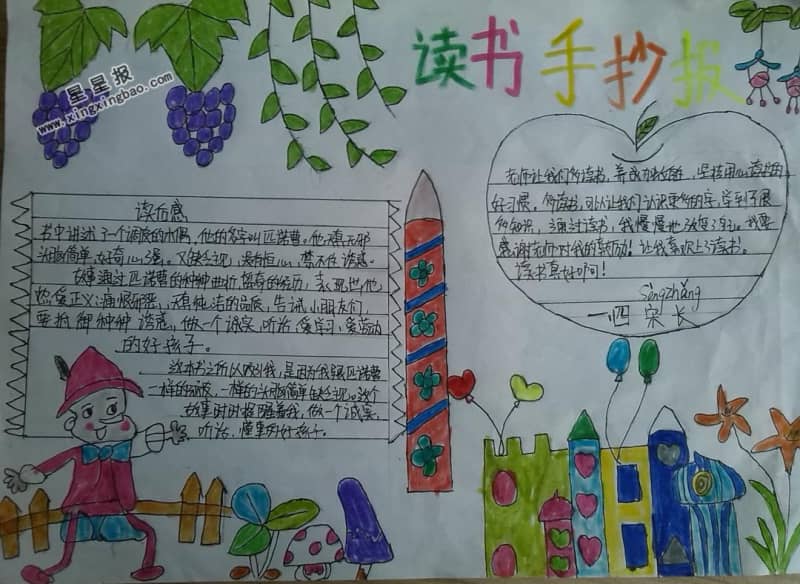 星星报
www.xingxingbao.com
读书手抄报
读后感
书中讲述了一个调皮的木偶，他的名字叫匹诺曹。他天真无邪
头脑简单，好奇心强，又缺乏主见，没有恒心，禁不住诱惑。
故事通过匹诺曹的种种曲折、离奇的经历，表现出他
正义、痛恨邪恶，天真纯洁的品质，告诉小朋友们，
要抵御种种诱惑，做一个诚实、听话、爱学习、爱劳动
的好孩子。
这本书之所以吸引我，是因为我跟匹诺曹
一样的顽皮，一样的头脑简单缺乏主见。这个
故事时时提醒着我，做一个诚实、
听话、懂事的好孩子。
老师让我们多读书，养成力的好，坚持用心读书的
好习惯，多读书，可以让我们认识更多的字，学到了很
多知识，通过读书，我慢慢地改变了自己。我要
感谢老师对我的鼓励！让我喜欢上了读书。
读书真好啊！
sòngzhǎng
一四 宋长